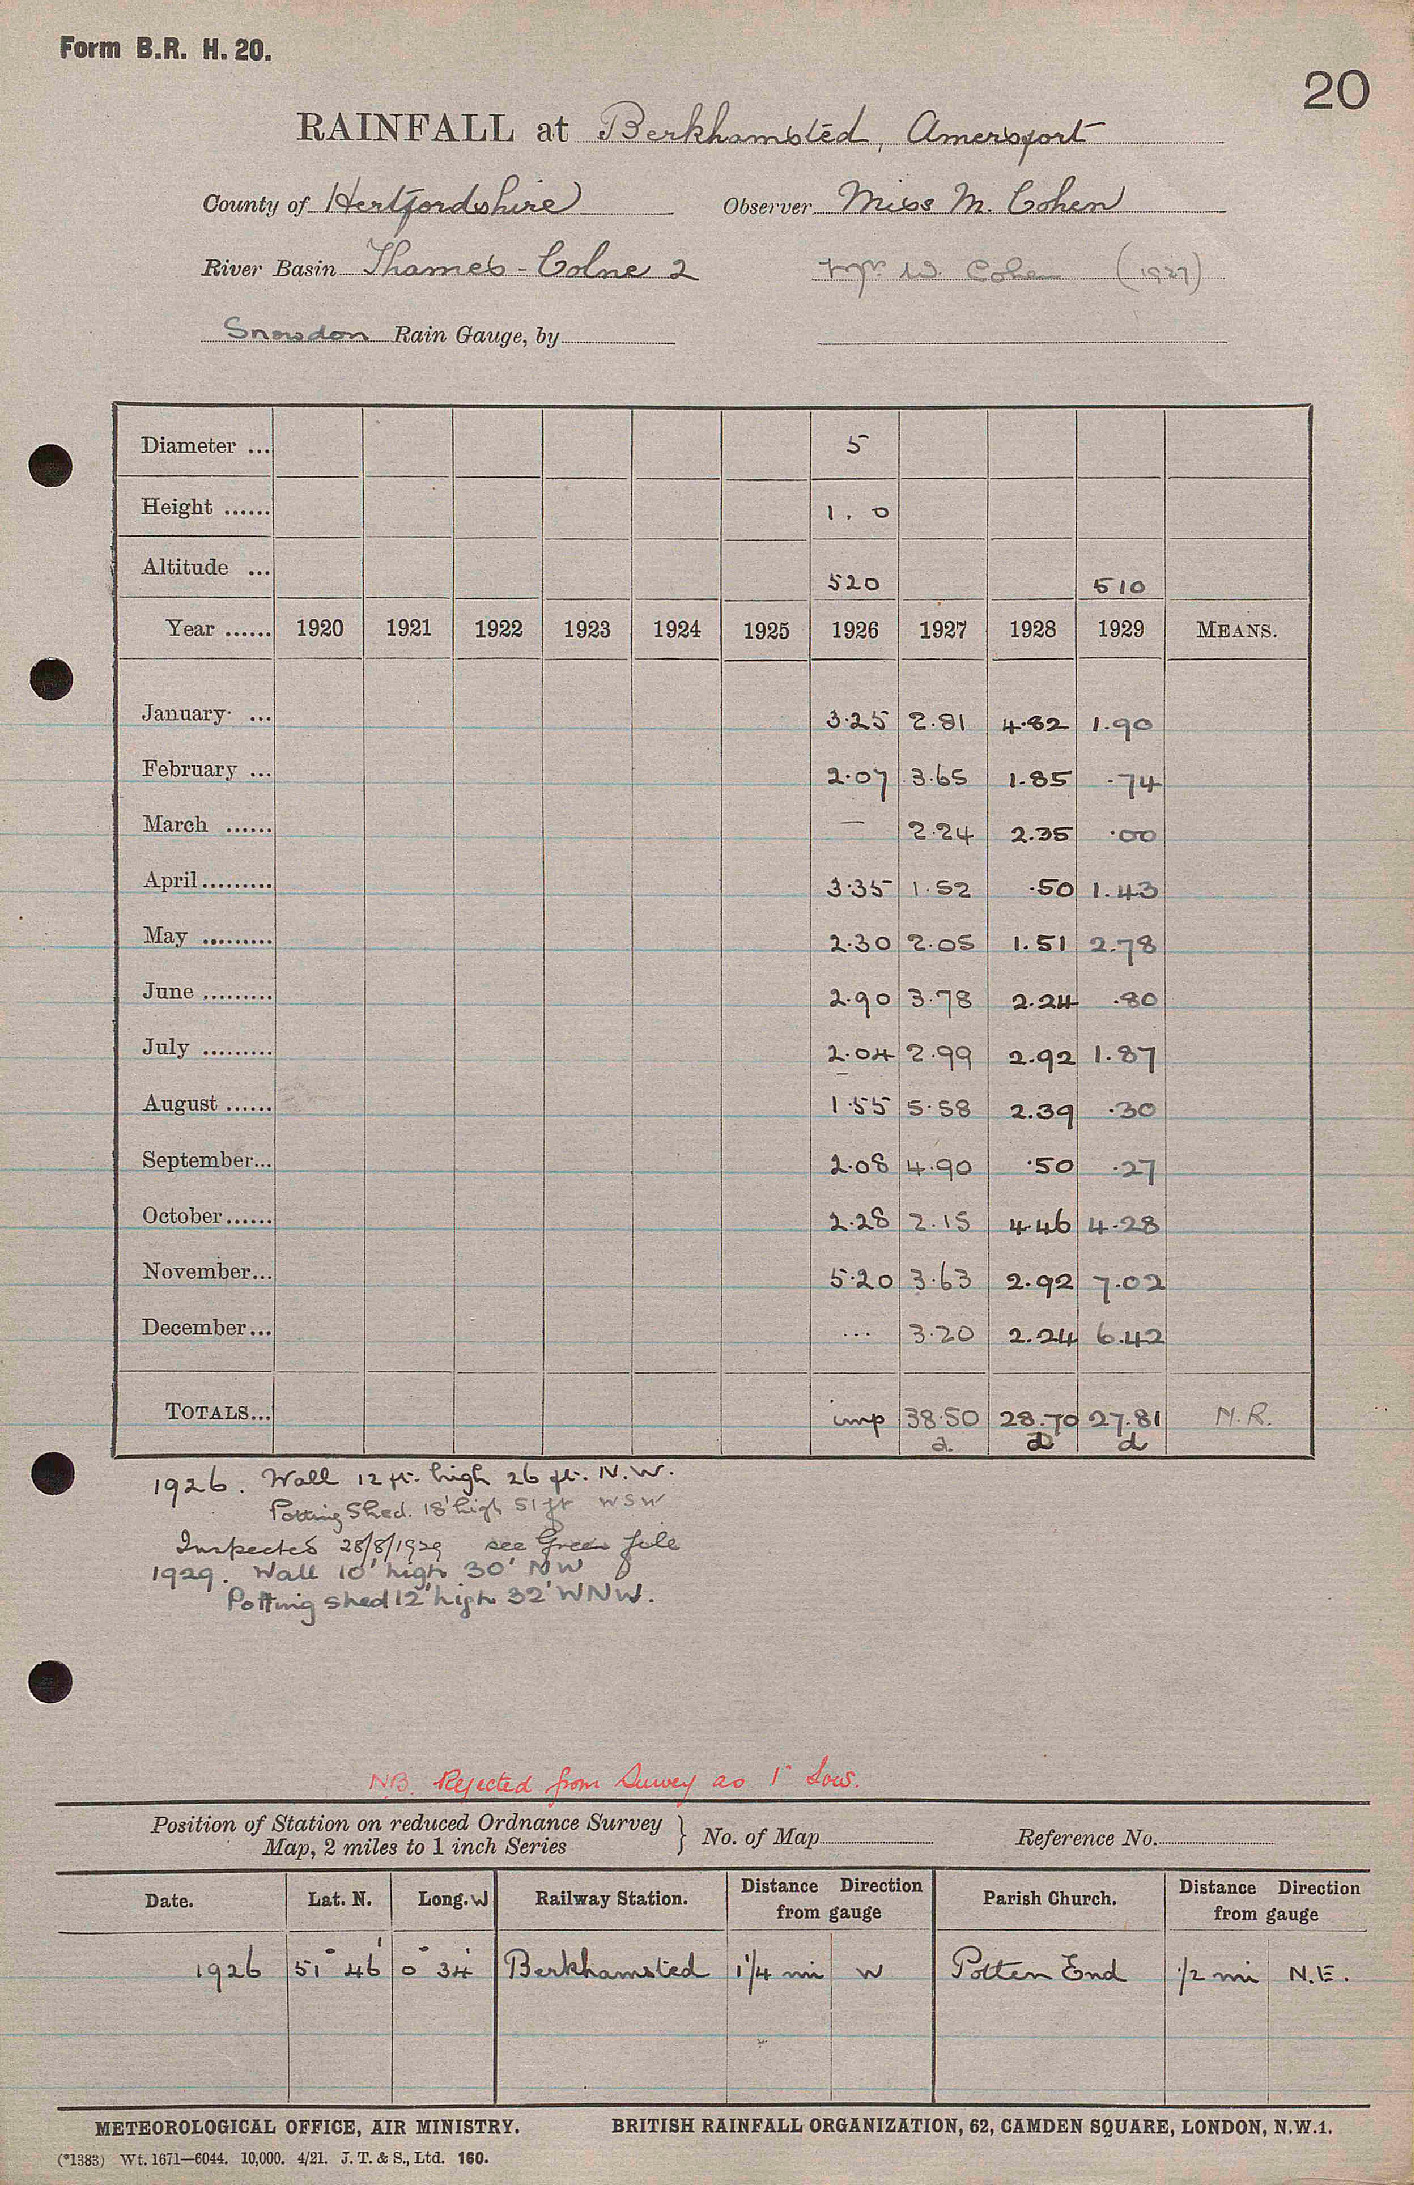 Form B.R. H. 20.
20
RAINFALL at Berkhamsted, Amersfort
County of Hertfordshire Observer Miss M. Cohen
River Basin Thames - Colne 2 Mr. W. Cohen (1927)
Snowdon Rain Gauge, by
Diameter ... 5
Height ...... 1. 0
Altitude ... 520 510
Year ...... 1920 1921 1922 1923 1924 1925 1926 1927 1928 1929 MEANS.
January ... 3.25 2.81 4.82 1.90
February ... 2.07 3.65 1.85 .74
March ...... — 2.24 2.35 .00
April ......... 3.35 1.52 .50 1.43
May ......... 2.30 2.05 1.51 2.78
June ......... 2.90 3.78 2.24 .80
July ......... 2.04 2.99 2.92 1.87
August ...... 1.55 5.58 2.39 .30
September... 2.08 4.90 .50 .27
October...... 2.28 2.15 4.46 4.28
November... 5.20 3.63 2.92 7.02
December... ... 3.20 2.24 6.42
TOTALS... imp 38.50 28.70 27.81 N.R.
d. d d
1926. Wall 12 ft. high 26 ft. N.W.
Potting Shed. 18' high 51 ft WSW
Inspected 28/8/1929 see Green file
1929. Wall 10' high 30' NW
Potting shed 12' high 32' WNW.
NB. Rejected from Survey as 1" low.
Position of Station on reduced Ordnance Survey
Map, 2 miles to 1 inch Series } No. of Map Reference No.
Date. Lat. N. Long. W Railway Station. Distance Direction from gauge Parish Church. Distance Direction from gauge
1926 51° 46' 0° 34' Berkhamsted 1 1/4 mi W Potten End 1/2 mi N.E.
METEOROLOGICAL OFFICE, AIR MINISTRY. BRITISH RAINFALL ORGANIZATION, 62, CAMDEN SQUARE, LONDON, N.W.1.
(*1383) Wt. 1671—6044. 10,000. 4/21. J. T. & S., Ltd. 160.